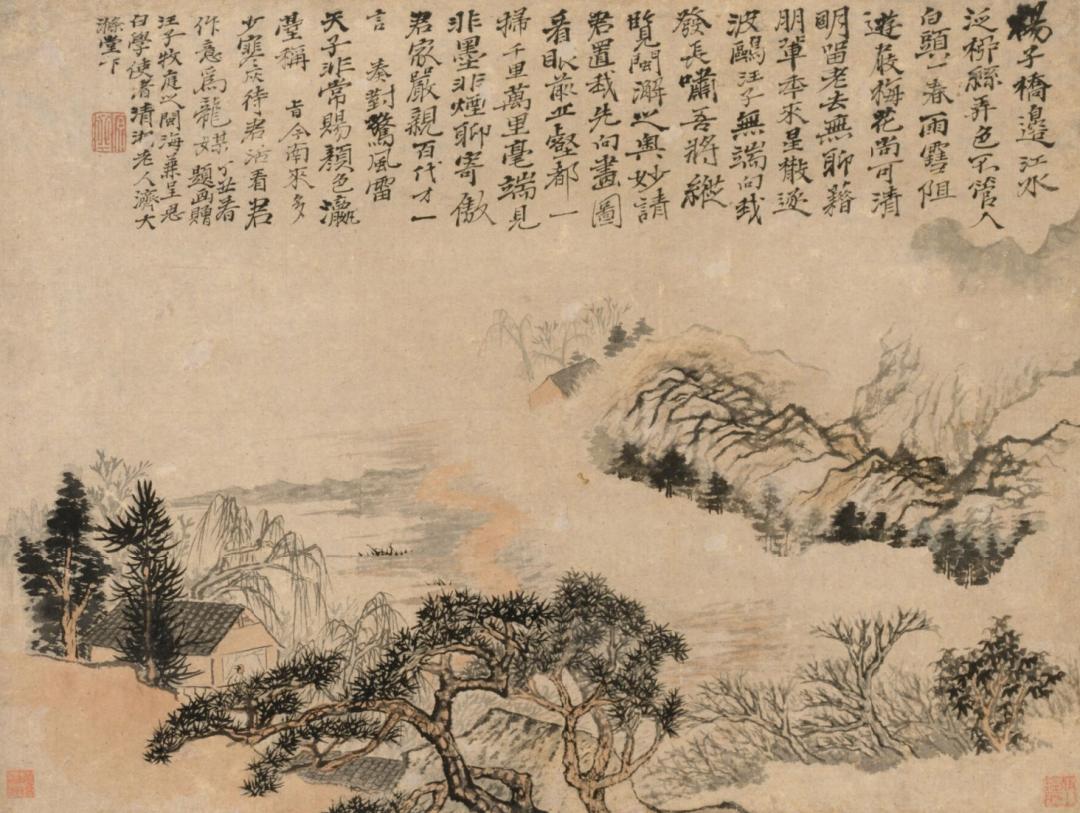 楊子橋邊江水
泛柳絲弄色不管人
白頭一春雨雪阻
遊屐梅花尚可清
明留老去無聊藉
朋輩年來星散逐
波鷗汪子無端向我
發長嘯吾將縱
覽閩澥之奧妙請
君置我先向畫圖
看眼前丘壑都一
掃千里萬里毫端見
非墨非煙聊寄傲
君家嚴親百代才一
言奏對驚風雷
天子非常賜顏色瀛
臺稱旨今南來多
少寒灰待君活看君
作意爲龍媒題画贈
汪子牧庭之閩海兼呈思
白學使者清湘老人濟大
滌堂下